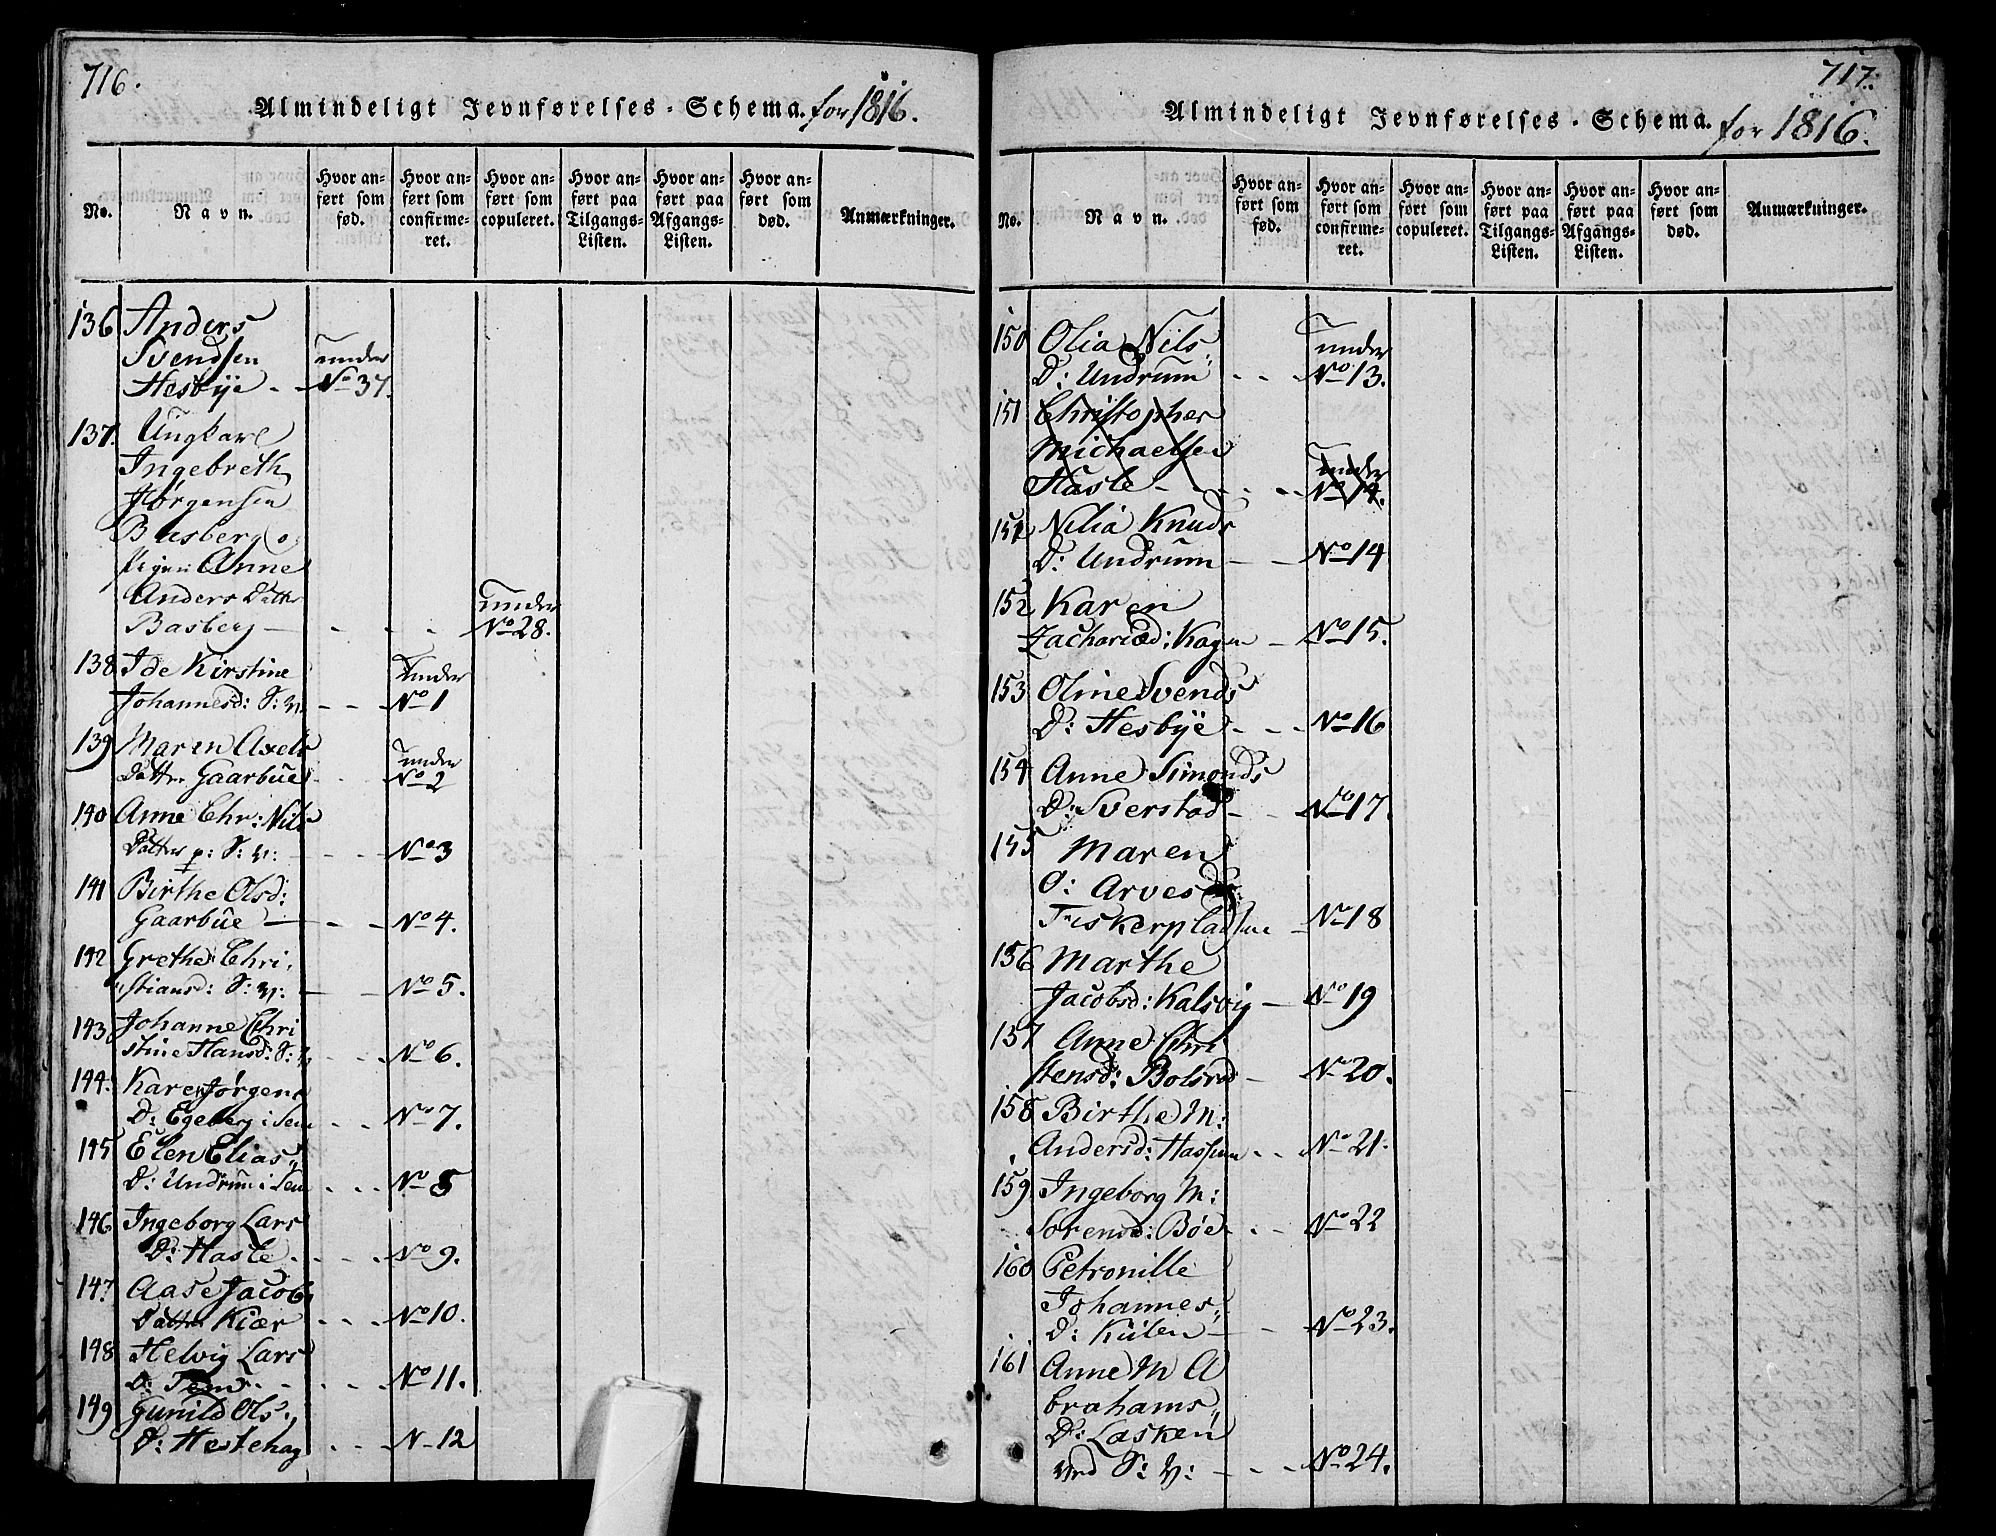 716.
Almindeligt Jevnførelses-Schema. for 1816.
No.
Navn.
Hvor anført som fød.
Hvor anført som confirmeret.
Hvor anført som copuleret.
Hvor anført paa Tilgangs-Listen.
Hvor anført paa Afgangs-Listen.
Hvor anført som død.
Anmærkninger.
136 Anders
Svendsen under
Hesbÿe - - No 37.
137. Ungkarl
Ingebreth
Jørgensen
Basberg o
Pigen Anne
Anders Datter under
Basberg - - - No 28.
138 Ide Kirstine under
Johannesd: S: V. - - No 1
139 Maren Axels under
Datter Gaarbüe - - No 2
140 Anne Chr: Nils
Datter p: S: V: - - - No 3
141 Birthe Olsd:
Gaarbüe - - - No 4.
142 Grethe Chri
stiansd: S: V: - - No 5.
143 Johanne Chri
stine Hansd: S: V - - No 6.
144. Karen Jørgens
D: Egeberg i Sem - - No 7.
145 Elen Elias"
D: Undrum i Sem - - - No 8
146 Ingeborg Lars
D: Hasle - - - - No 9.
147 Aase Jacobs
Datter Kiær - - - No 10.
148 Helvig Lars
D: Sem - - - - No 11.
149 Gunild Ols"
D: Hestehag - - N- 12
717.
Almindeligt Jevnførelses-Schema. for 1816.
No.
Navn.
Hvor anført som fød.
Hvor anført som confirmeret.
Hvor anført som copuleret.
Hvor anført paa Tilgangs-Listen.
Hvor anført paa Afgangs-Listen.
Hvor anført som død.
Anmærkninger.
150 Olia Nils" under
D: Undrum - - No 13.
151 Christopher
Michaelsen under
Hasle - - - - No 14.
151 Nilia Knuds
D: Undrum - - No 14
152 Karen
Zachariæd: Kagen - No 15.
153 Oline Svends
D: Hesbÿe - - - No 16
154 Anne Simonds
D: Sverstad - - No 17.
155 Maren
O: Arvesd
Fiskerpladsen - No 18
156 Marthe
Jacobsd: Kalsvig - No 19
157 Anne Chri
stensd: Bolsrød - No 20.
158 Birthe M:
Andersd: Hassum - - No 21.
159 Ingeborg M:
Sorensd: Bøe - - No 22
160 Petronille
Johannes"
D: Külen - - No 23.
161 Anne M A
brahams"
D: Lasken
ved S: V: - - - No 24.